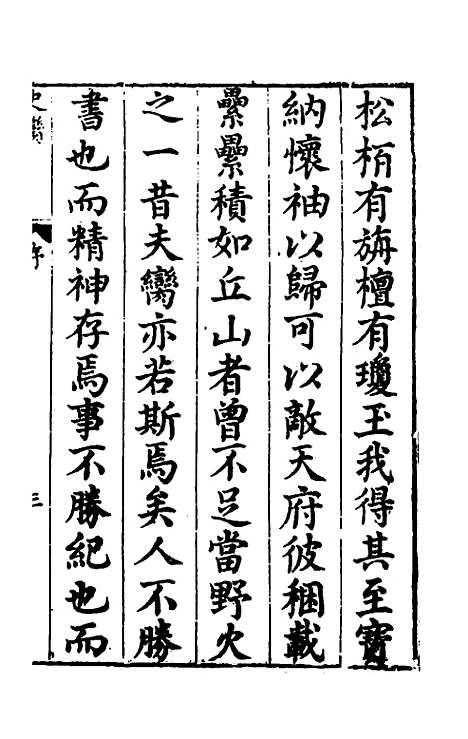 松栢有旃檀有瓊玉我得其至寶
納懷袖以歸可以敵天府彼稛載
纍纍積如丘山者曾不足當野火
之一昔夫臠亦若斯焉矣人不勝
書也而精神存焉事不勝紀也而
史臠
序
三